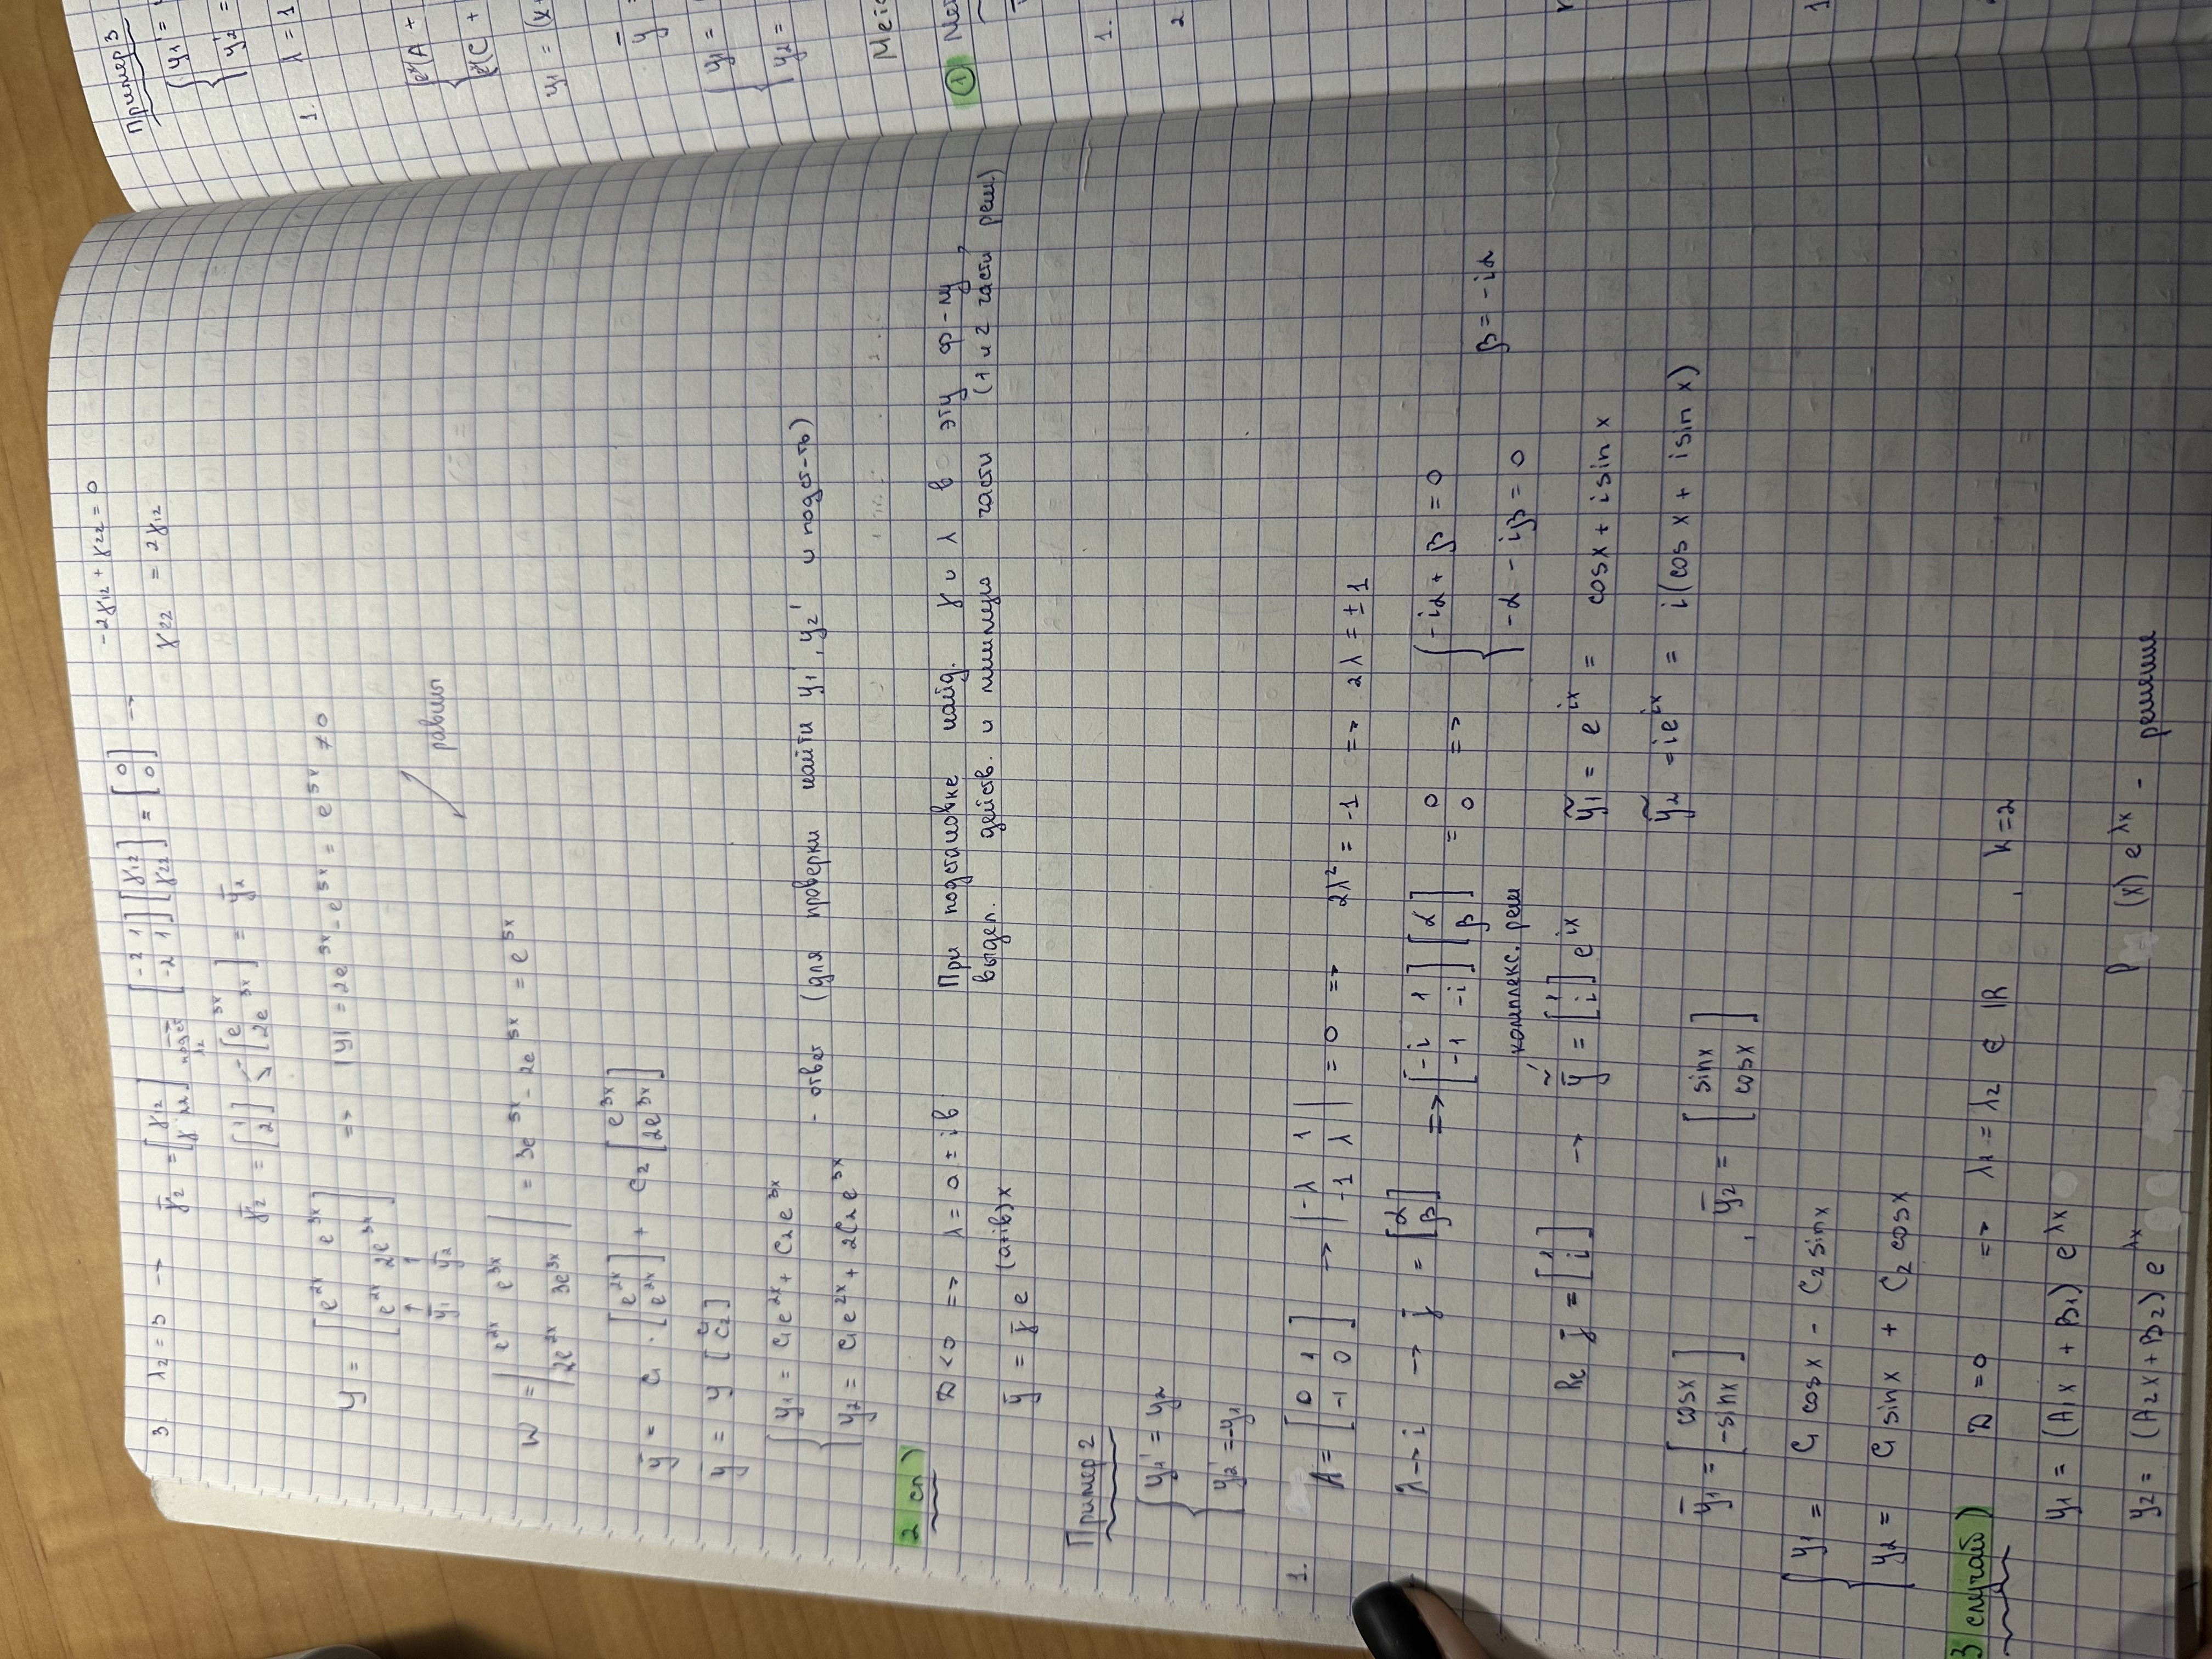 3. λ₂ = 3 → γ̄₂ = [γ₁₂ γ₂₂] подст λ₂ [-2 1 -2 1] [γ₁₂ γ₂₂] = [0 0] → -2γ₁₂ + γ₂₂ = 0
γ₂₂ = 2γ₁₂
γ̄₂ = [1 2] → [e^3x 2e^3x] = ȳ₂
Y = [e^2x e^3x e^2x 2e^3x] => |Y| = 2e^5x - e^5x = e^5x ≠ 0
↑ ↑
ȳ₁ ȳ₂
равны
W = |e^2x e^3x 2e^2x 3e^3x| = 3e^5x - 2e^5x = e^5x
ȳ = C₁ · [e^2x e^2x] + C₂ [e^3x 2e^3x]
ȳ = Y [C₁ C₂]
{ y₁ = C₁e^2x + C₂e^3x
y₂ = C₁e^2x + 2C₂e^3x
- ответ (для проверки найти y₁', y₂' и подст-ть)
2 сл)
D < 0 => λ = a ± ib
ȳ = γ̄ e^(a+ib)x
При подстановке найд. γ и λ в эту ф-лу,
выдел. действ. и мнимую части (1 и 2 части реш.)
Пример 2
{ y₁' = y₂
y₂' = -y₁
1. A = [0 1 -1 0] → |-λ 1 -1 λ| = 0 => 2λ² = -1 => 2λ = ± 1
λ → i → γ̄ = [α β] => [-i 1 -1 -i] [α β] = 0 0 => { -iα + β = 0
-α - iβ = 0
β = -iα
комплекс. реш
Re γ̄ = [1 i] → ỹ = [1 i] e^ix
ỹ₁ = e^ix = cosx + isin x
ỹ₂ = ie^ix = i(cos x + isin x)
ȳ₁ = [cosx -sinx], ȳ₂ = [sinx cosx]
{ y₁ = C₁ cosx - C₂ sinx
y₂ = C₁ sinx + C₂ cosx
3 случай) D = 0 => λ₁ = λ₂ ∈ ℝ, k = 2
y₁ = (A₁x + B₁) e^λx
y₂ = (A₂x + B₂) e^λx
P (x) e^λx - решение
Пример 3
{ y₁' =
y₂' =
1. λ = 1
{ e^x(A +
e^x(C +
y₁ = (x+
ȳ =
{ y₁ =
y₂ =
①
1.
2